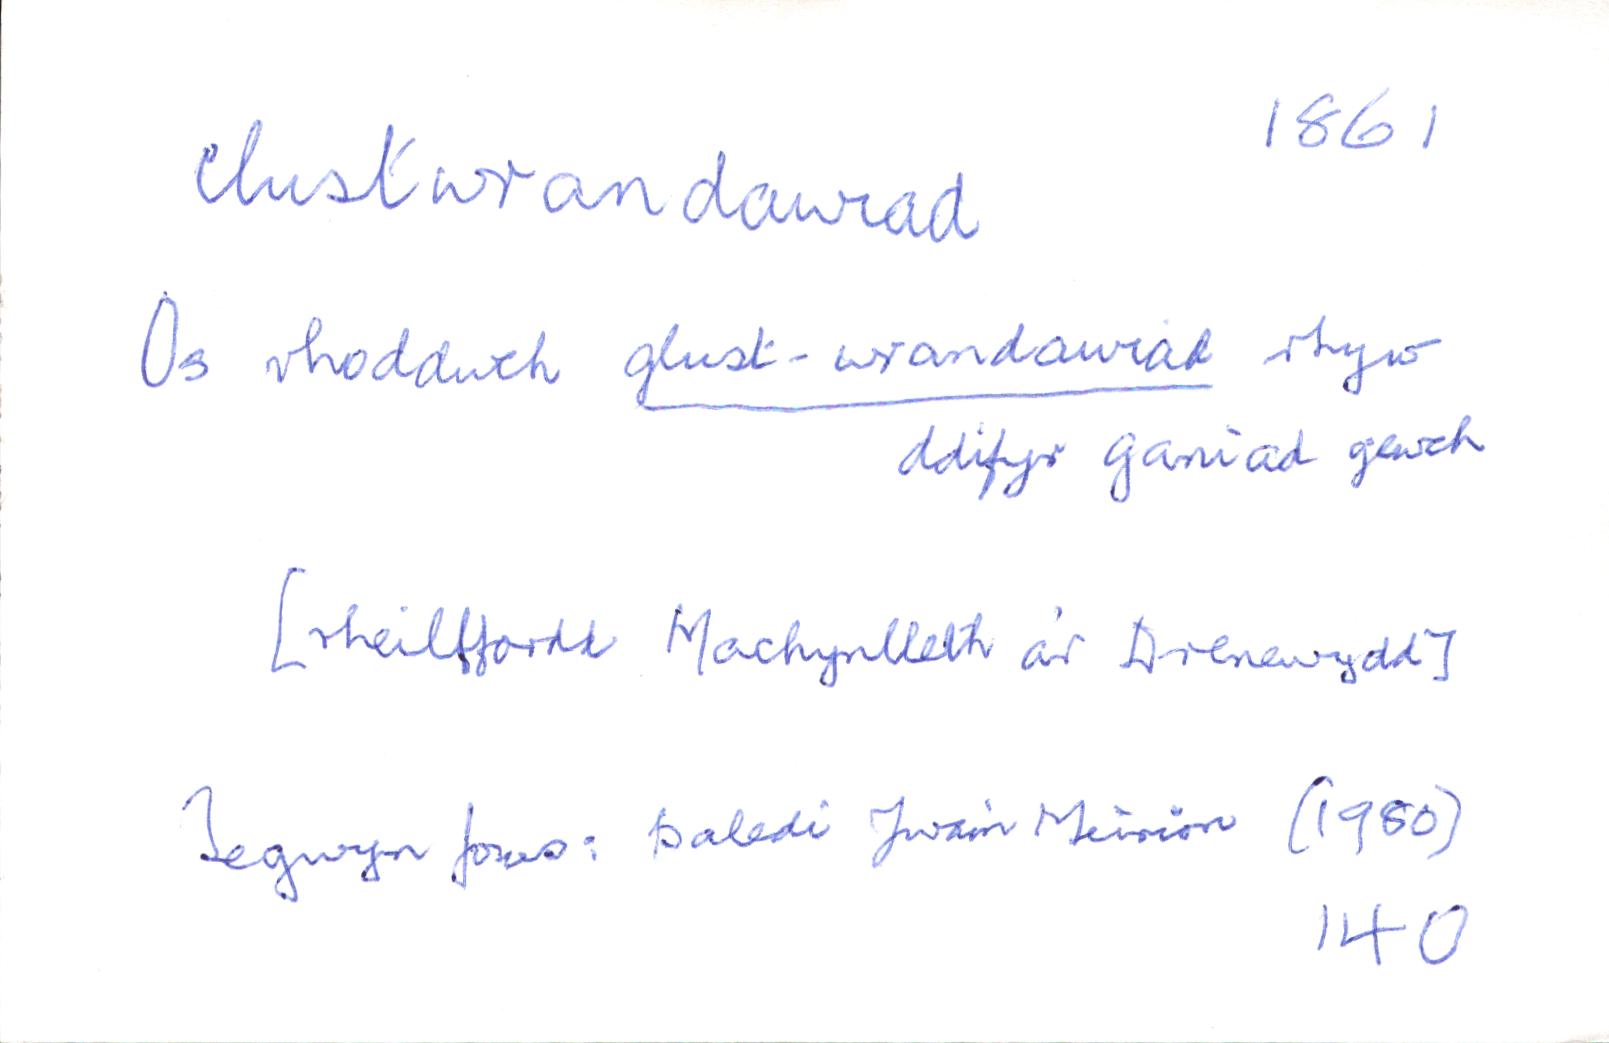 1861
clustwrandawiad
Os rhoddwch glust-wrandawiad rhyw
ddifyr ganiad gewch
[rheilffordd Machynlleth a'r Drenewydd]
Tegwyn Jones: Baledi Ywain Meirion (1980)
140